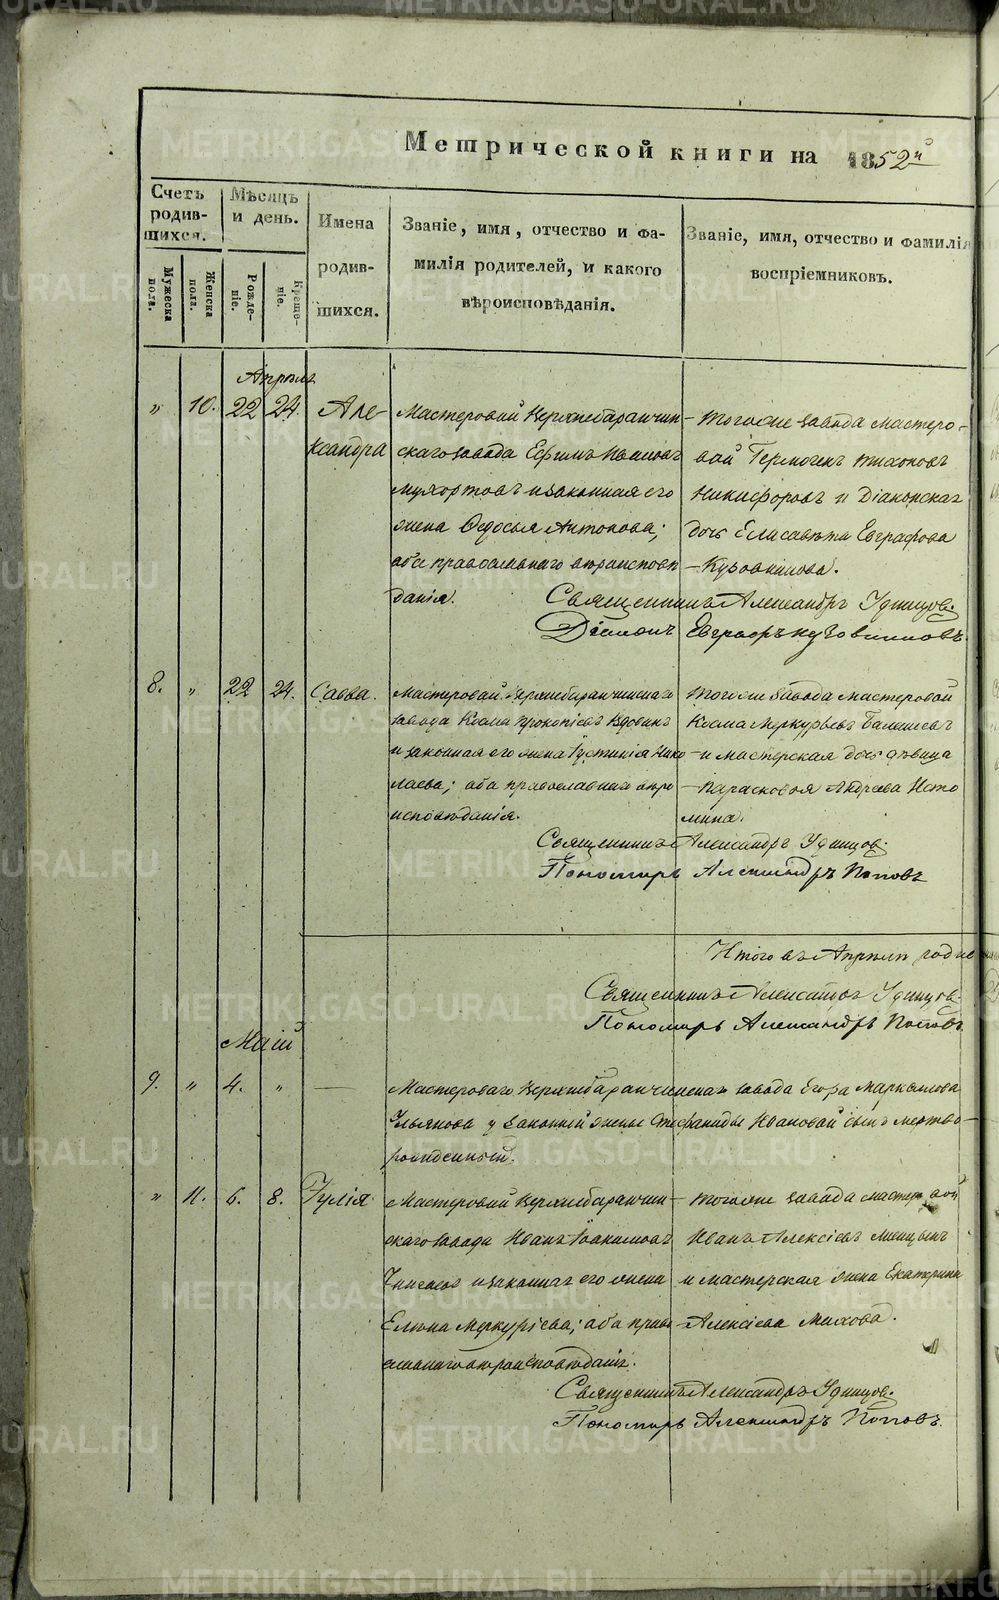 Метрической книги на 1852й
Счетъ родившихся.
Мѣсяцъ и день.
Имена родившихся.
Званіе, имя, отчество и фамилія родителей, и какого вѣроисповѣданія.
Званіе, имя, отчество и фамилія воспріемниковъ.
Мужеска пола.
Женска пола.
Рожденіе.
Крещеніе.
Апрѣль
" 10. 22 24. Але-
ксандра
Мастеровой Верхнебаранчин-
скаго завода Ефимъ Ивановъ
и законная его
жена Ѳедосья Антонова;
оба православнаго вѣроисповѣ
данія.
Тогоже завода мастеро-
вой Гермогенъ Тихоновъ
Никифоровъ и Діаконская
дочь Елисавета Евграфова
Кузовникова.
Священникъ Александръ Удинцов.
Діаконъ Евграфъ Кузовниковъ.
8. " 22 24. Савва.
Мастеровой Верхнебаранчинскаго
завода Козма Прокопіевъ Вдовинъ
и законная его жена Іустинія Нико
лаева; оба православнаго вѣро
исповѣданія.
Тогоже завода мастеровой
Козма Меркурьевъ
и мастерская дочь дѣвица
Парасковья Андреева Исто
мина.
Священникъ Александръ Удинцов.
Пономарь Александръ Поповъ
Итого въ Апрѣлѣ роди
Священникъ Александръ Удинцов.
Пономарь Александръ Поповъ.
Маій
9. " 4. " —
Мастероваго Верхнебаранчинскаго завода Егора Маркелова
Ульянова у законной жены Стефаниды Ивановой сынъ мертво-
рожденный.
" 11. 6. 8. Іулія.
Мастеровой Верхнебаранчин-
скаго завода Иванъ Іоакимовъ
и законная его жена
Елена Меркуріева; оба право
славнаго вѣроисповѣданія.
Тогоже завода мастеровой
Иванъ Алексіевъ
и мастерская жена Екатерина
Алексіева
Священникъ Александръ Удинцов.
Пономарь Александръ Поповъ.
METRIKI.GASO-URAL.RU